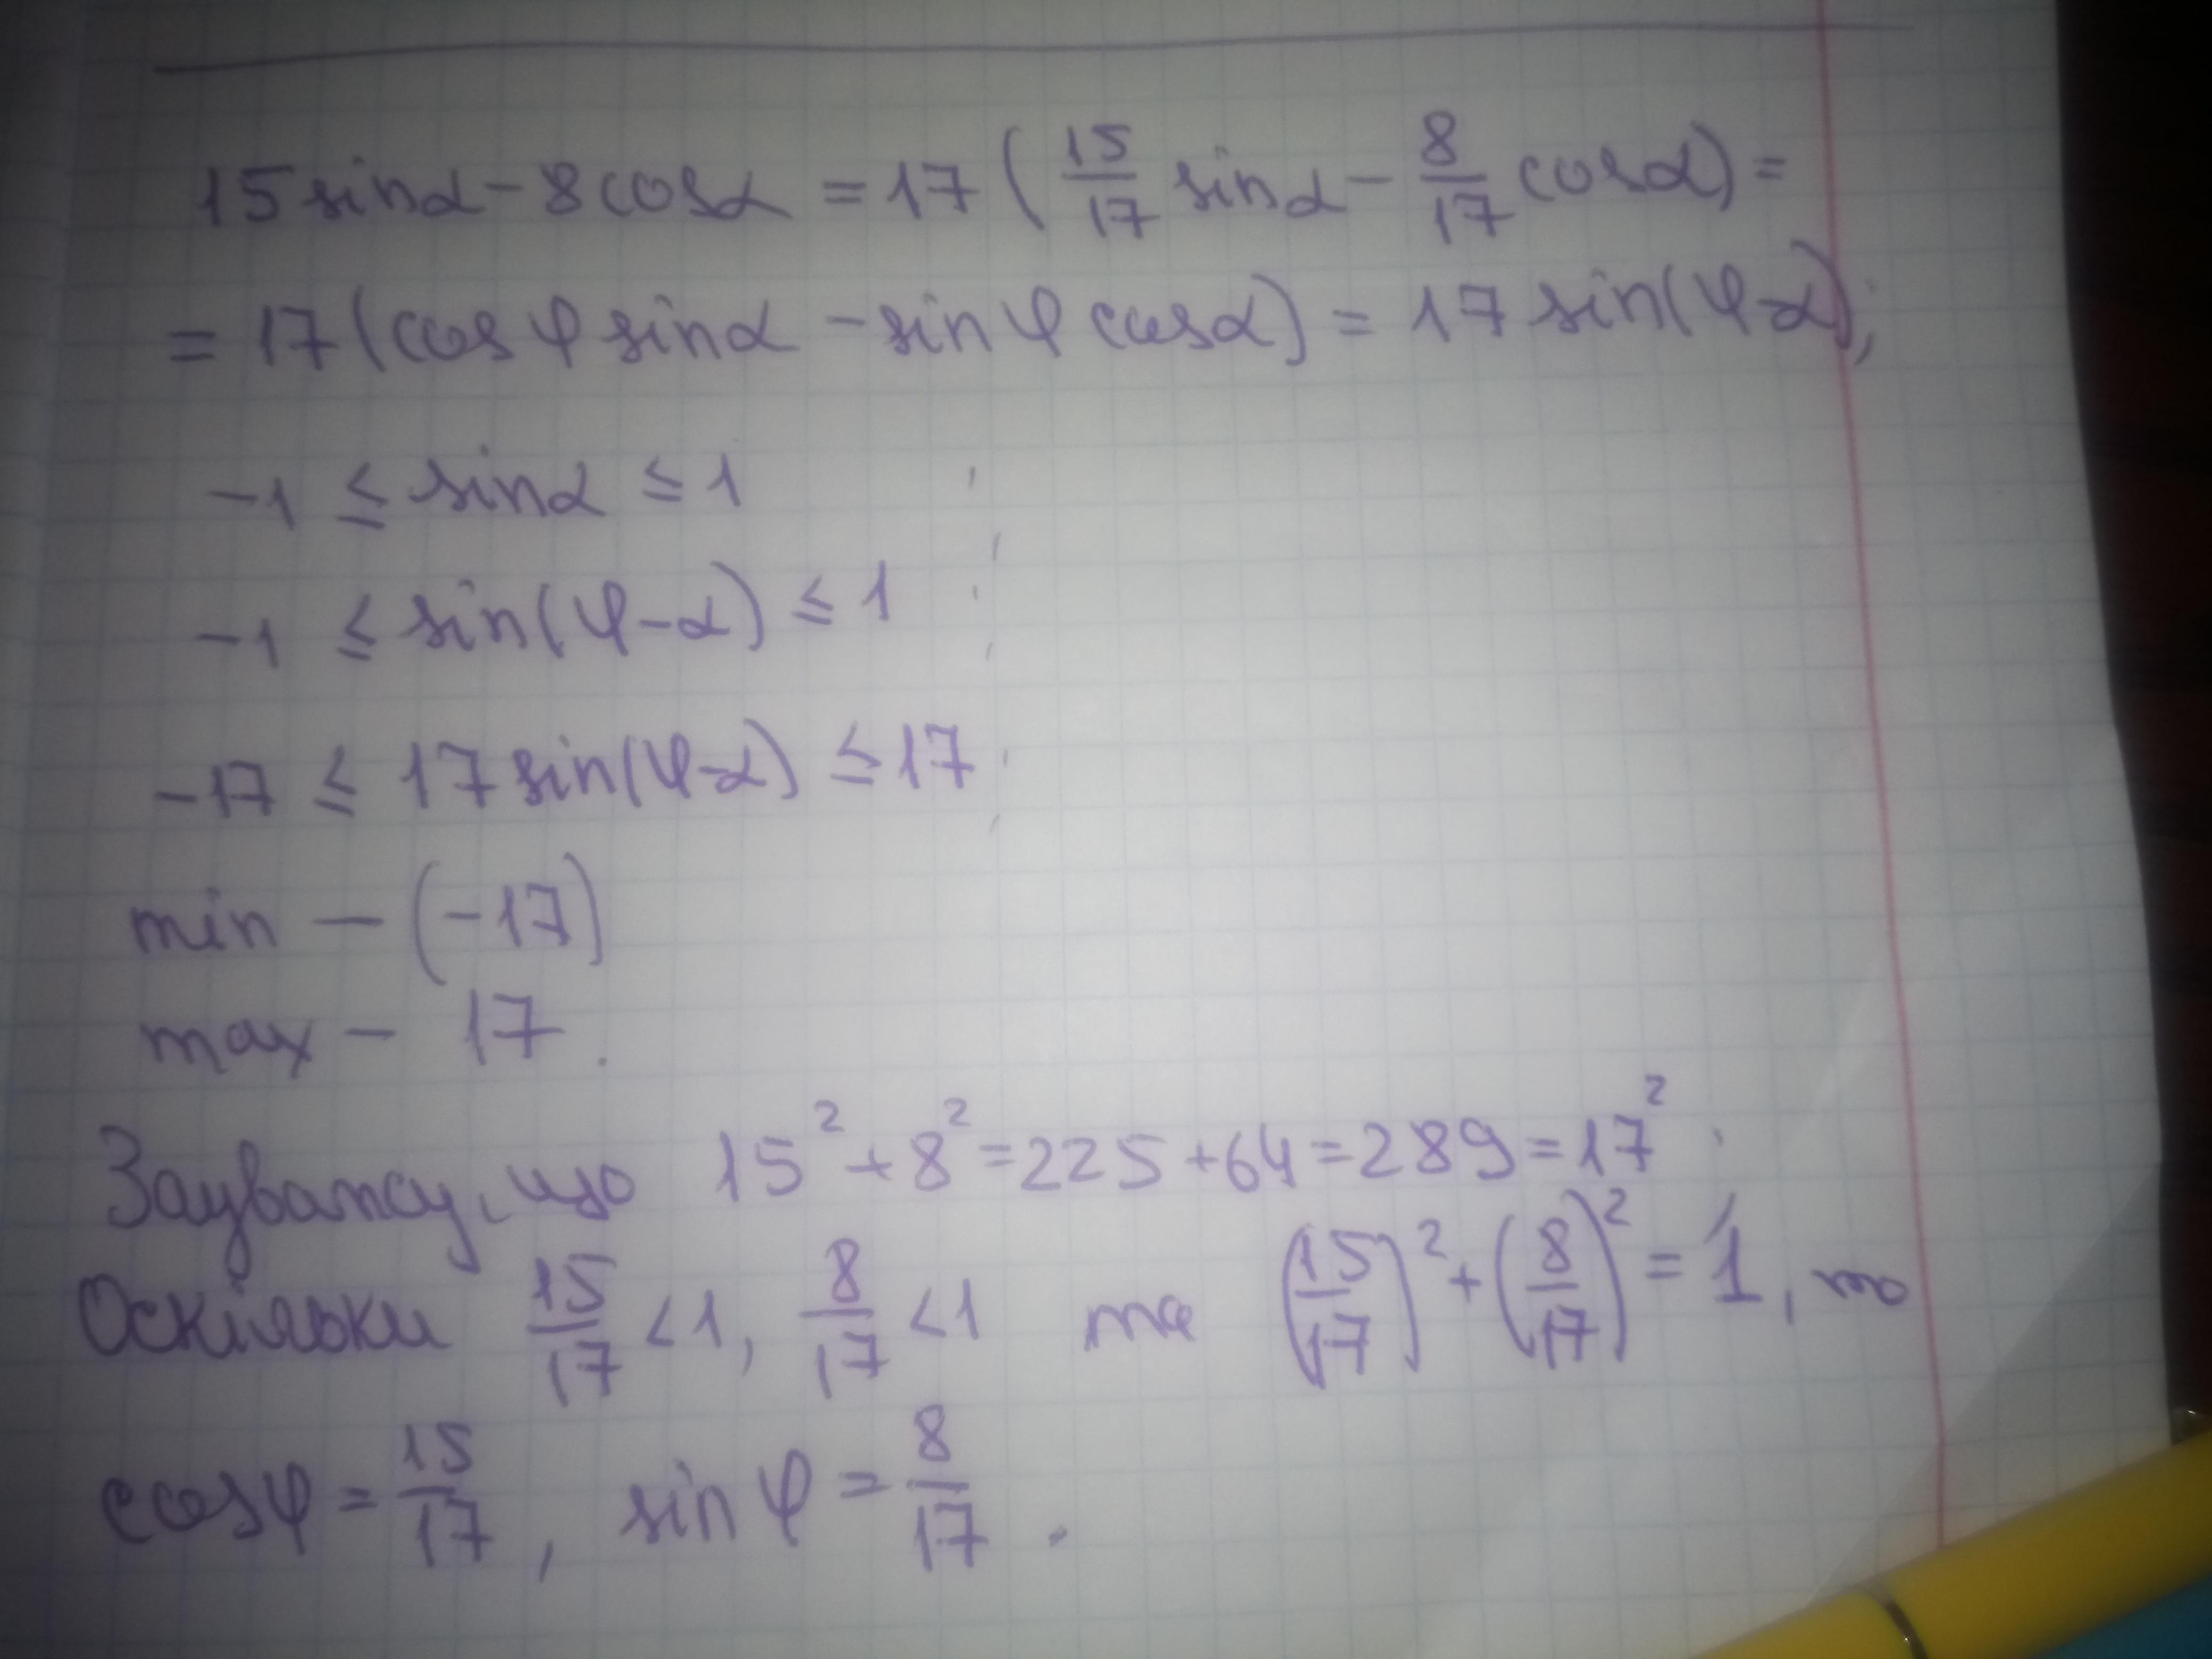 15 sinα − 8 cosα = 17 ( 15/17 sinα − 8/17 cosα) =
= 17 (cos φ sinα − sin φ cosα) = 17 sin(φ−α);
−1 ≤ sinα ≤ 1
−1 ≤ sin(φ−α) ≤ 1
−17 ≤ 17 sin(φ−α) ≤ 17
min — (−17)
max − 17.
Зауважу, що 15² + 8² = 225 + 64 = 289 = 17².
Оскільки 15/17 < 1, 8/17 < 1 та (15/17)² + (8/17)² = 1, то
cos φ = 15/17, sin φ = 8/17.